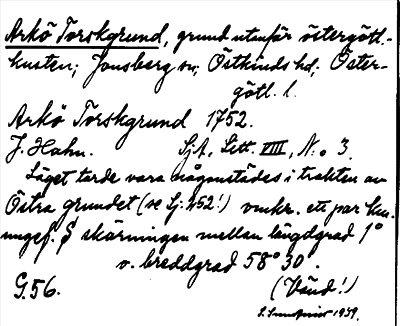 Arkö Torskgrund, grund utanför östergötl.-
kusten; Jonsberg sn, Östkinds hd, Öster-
götl. l.
Arkö Torskgrund 1752.
J. Hahn. SjA, Litt. VIII, N:o 3.
Läget torde vara någonstädes i trakten av
Östra grundet (se Sj. 452!) omkr. ett par km.
ungef. S skärningen mellan längdgrad 1°
o. breddgrad 58° 30´.
G. 56. (Vänd!)
1939.